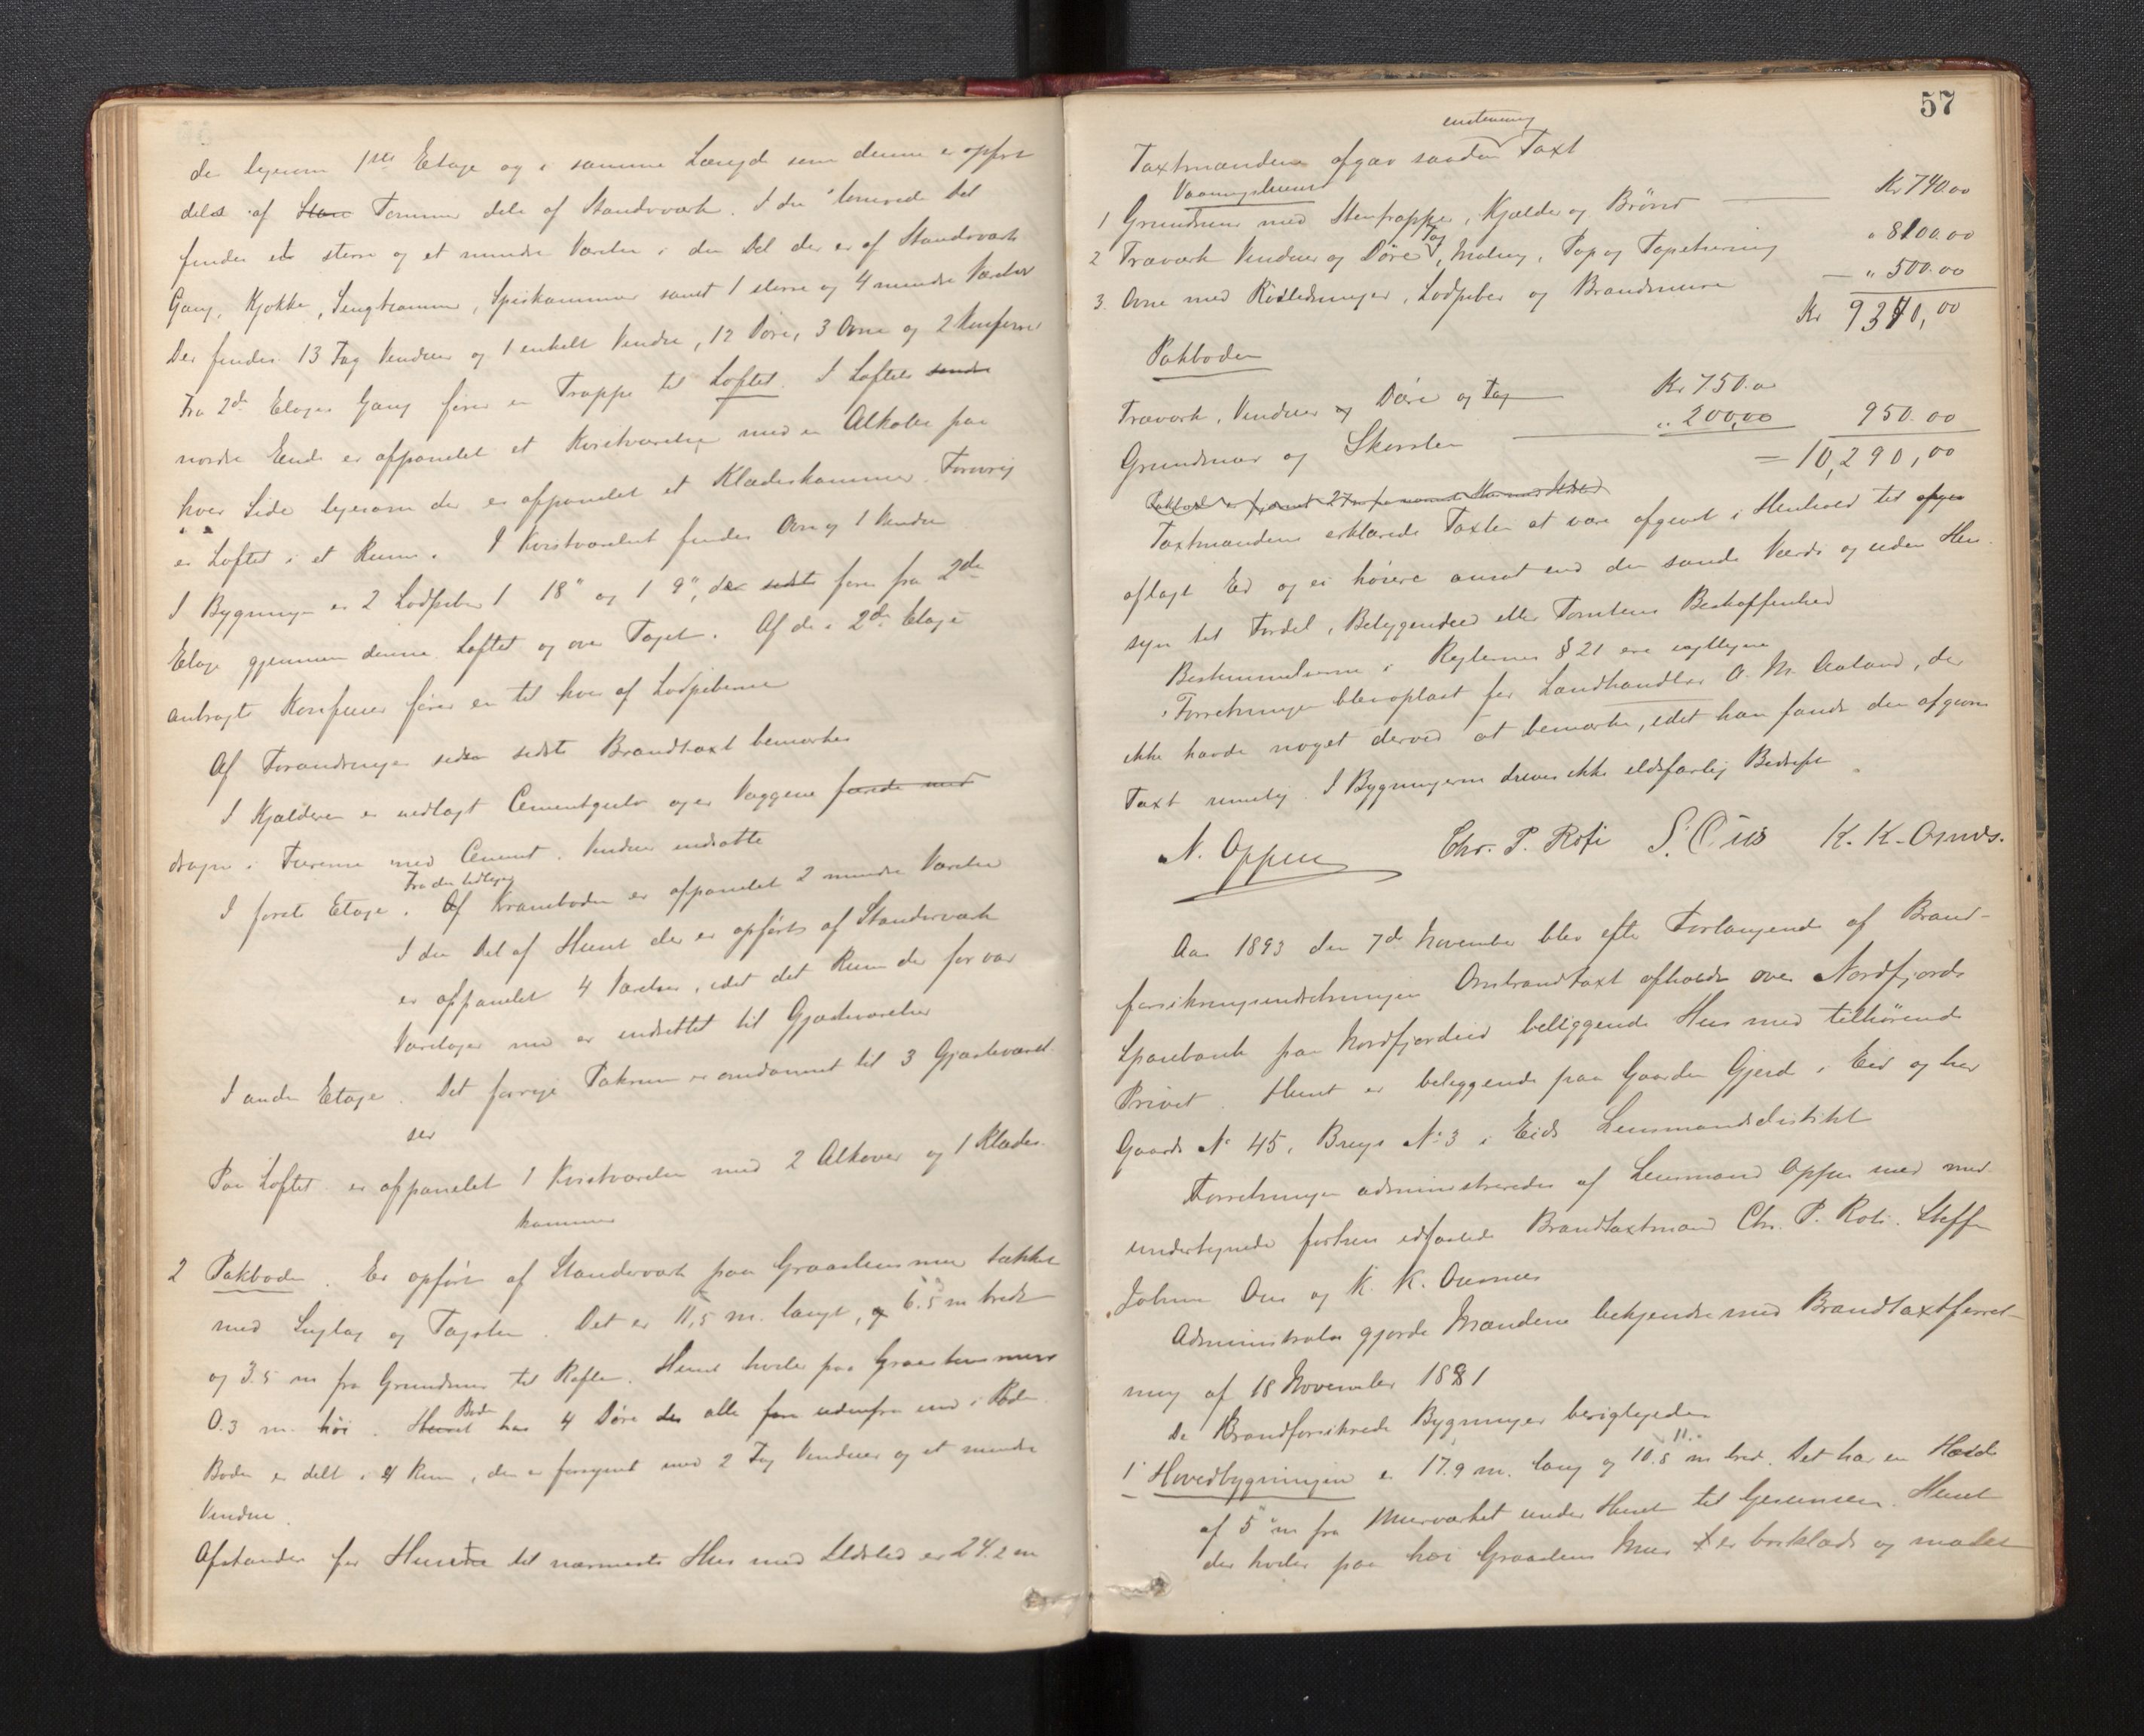 de ligesom 1ste Etage og i samme Længde som denne er opført
dels af Stan Tømmer dels af Standværk. I den tømrede Del
findes et større og et mindre Værelse i den Del der er af Standværk
Gang, Kjøkken, Sengkammer, Spiskammer samt 1 større og 4 mindre Værelser
Der findes 13 Fag Vinduer og 1 enkelt Vindu, 12 Døre, 3 Ovne og 2 Komfurer
Fra 2den Etages Gang fører en Trappe til Loftet. I Loftets søndre
nordre Ende er afpanelet et Kvistværelse med en Alkove paa
hver Side ligesom der er afpanelet et Klædeskammer. Forøvrig
er Loftet i et Rum. I Kvistværelset findes Ovn og 1 Vindu
I Bygningen er 2 Lodpiber 1 18" og 1 9", der sidste fører fra 2den
Etage gjennem denne Loftet og over Taget. Af de i 2den Etage
anbragte Komfurer fører en til hver af Lodpiberne
Af Forandringer siden sidste Brandtaxt bemærkes
I Kjælderen er nedlagt Cementgulv og er Væggene førede med
dragne i Fugerne med Cement. Vinduer indsatte
I første Etage. Af Fra den tidligere Kramboden er afpanelet 2 mindre Værelser
I den Del af Huset der er opført af Standværk
er afpanelet 4 Værelser, idet det Rum der før var
Varelager nu er indrettet til Gjæsteværelser
I anden Etage. Det forrige Pakrum er omdannet til 3 Gjæsteværel-
ser
Paa Loftet er afpanelet 1 Kvistværelse med 2 Alkover og 1 Klædes-
kammer
2 Pakboden. Er opført af Standværk paa Graastensmur tækket
med Sutag og Tagsten. Det er 11,5 m. langt, og 6.5 m bredt
og 3.5 m fra Grundmur til Rafter. Huset hviler paa Graastensmur
0.3 m høi. Huset Boden har 4 Døre der alle fører udenfra ind i Boden.
Boden er delt i 4 Rum, den er forsynet med 2 Fag Vinduer og et mindre
Vindue.
Afstanden fra Huset til nærmeste Hus med Ildsted er 24.2 m
57
Taxtmændene afgav saadan enstemmig Taxt
Vaaningshuset
1 Grundmur med Stentrappe, Kjælder og Brønd Kr 740.00
2 Træværk Vinduer og Døre, Tag, Maling, Pap og Tapetsering " 8100.00
3. Ovne med Rørledninger, Lodpiber og Brandmure " 500.00
Kr 9340,00
Pakboden
Træværk, Vinduer og Døre og Tag Kr 750.00
Grundmur og Skorsten " 200,00 950.00
= 10,290,00
Taxtmændene erklærede Taxten at være afgivet i Henhold til afgiv
aflagt Ed og ei høiere ansat end den sande Værdi og uden Hen-
syn til Fordel, Beliggenhed eller Tomtens Beskaffenhed
Bestemmelserne i Reglernes § 21 ere iagttagne
Forretningen blev oplæst for Landhandler O. M. Aaland, der
ikke havde noget derved at bemærke, idet han fandt den afgivne
Taxt rimelig. I Bygningerne drives ikke ildsfarlig Bedrift.
N. Oppen Chr. P. Roti S. Øus K. K.
Aar 1893 den 7de November blev efter Forlangende af Brand-
forsikringsindretningen Ombrandtaxt afholdt over Nordfjords
Sparebank paa Nordfjordeid beliggende Hus med tilhørende
Privet. Huset er beliggende paa Gaarden Gjerde i Eid og har
Gaards No 45, Brugs No 3 i Eids Lensmandsdistrikt
Forretningen administreredes af Lensmand Oppen med med-
undertegnede forhen edfæstede Brandtaxtmænd Chr. P. Roti. Steffen
Johnsen Øus og K. K.
Administrator gjorde Mændene bekjendte med Brandtaxtforret-
ning af 18 November 1881
De Brandforsikrede Bygninger besigtigedes
1 Hovedbygningen er 17.9 m. lang og 10.8 m bred. Det har en Høide
af 5 m fra Murværket under Huset til Gesimsen. Huset
der hviler paa høi Graastens Mur er bordklædt og malet